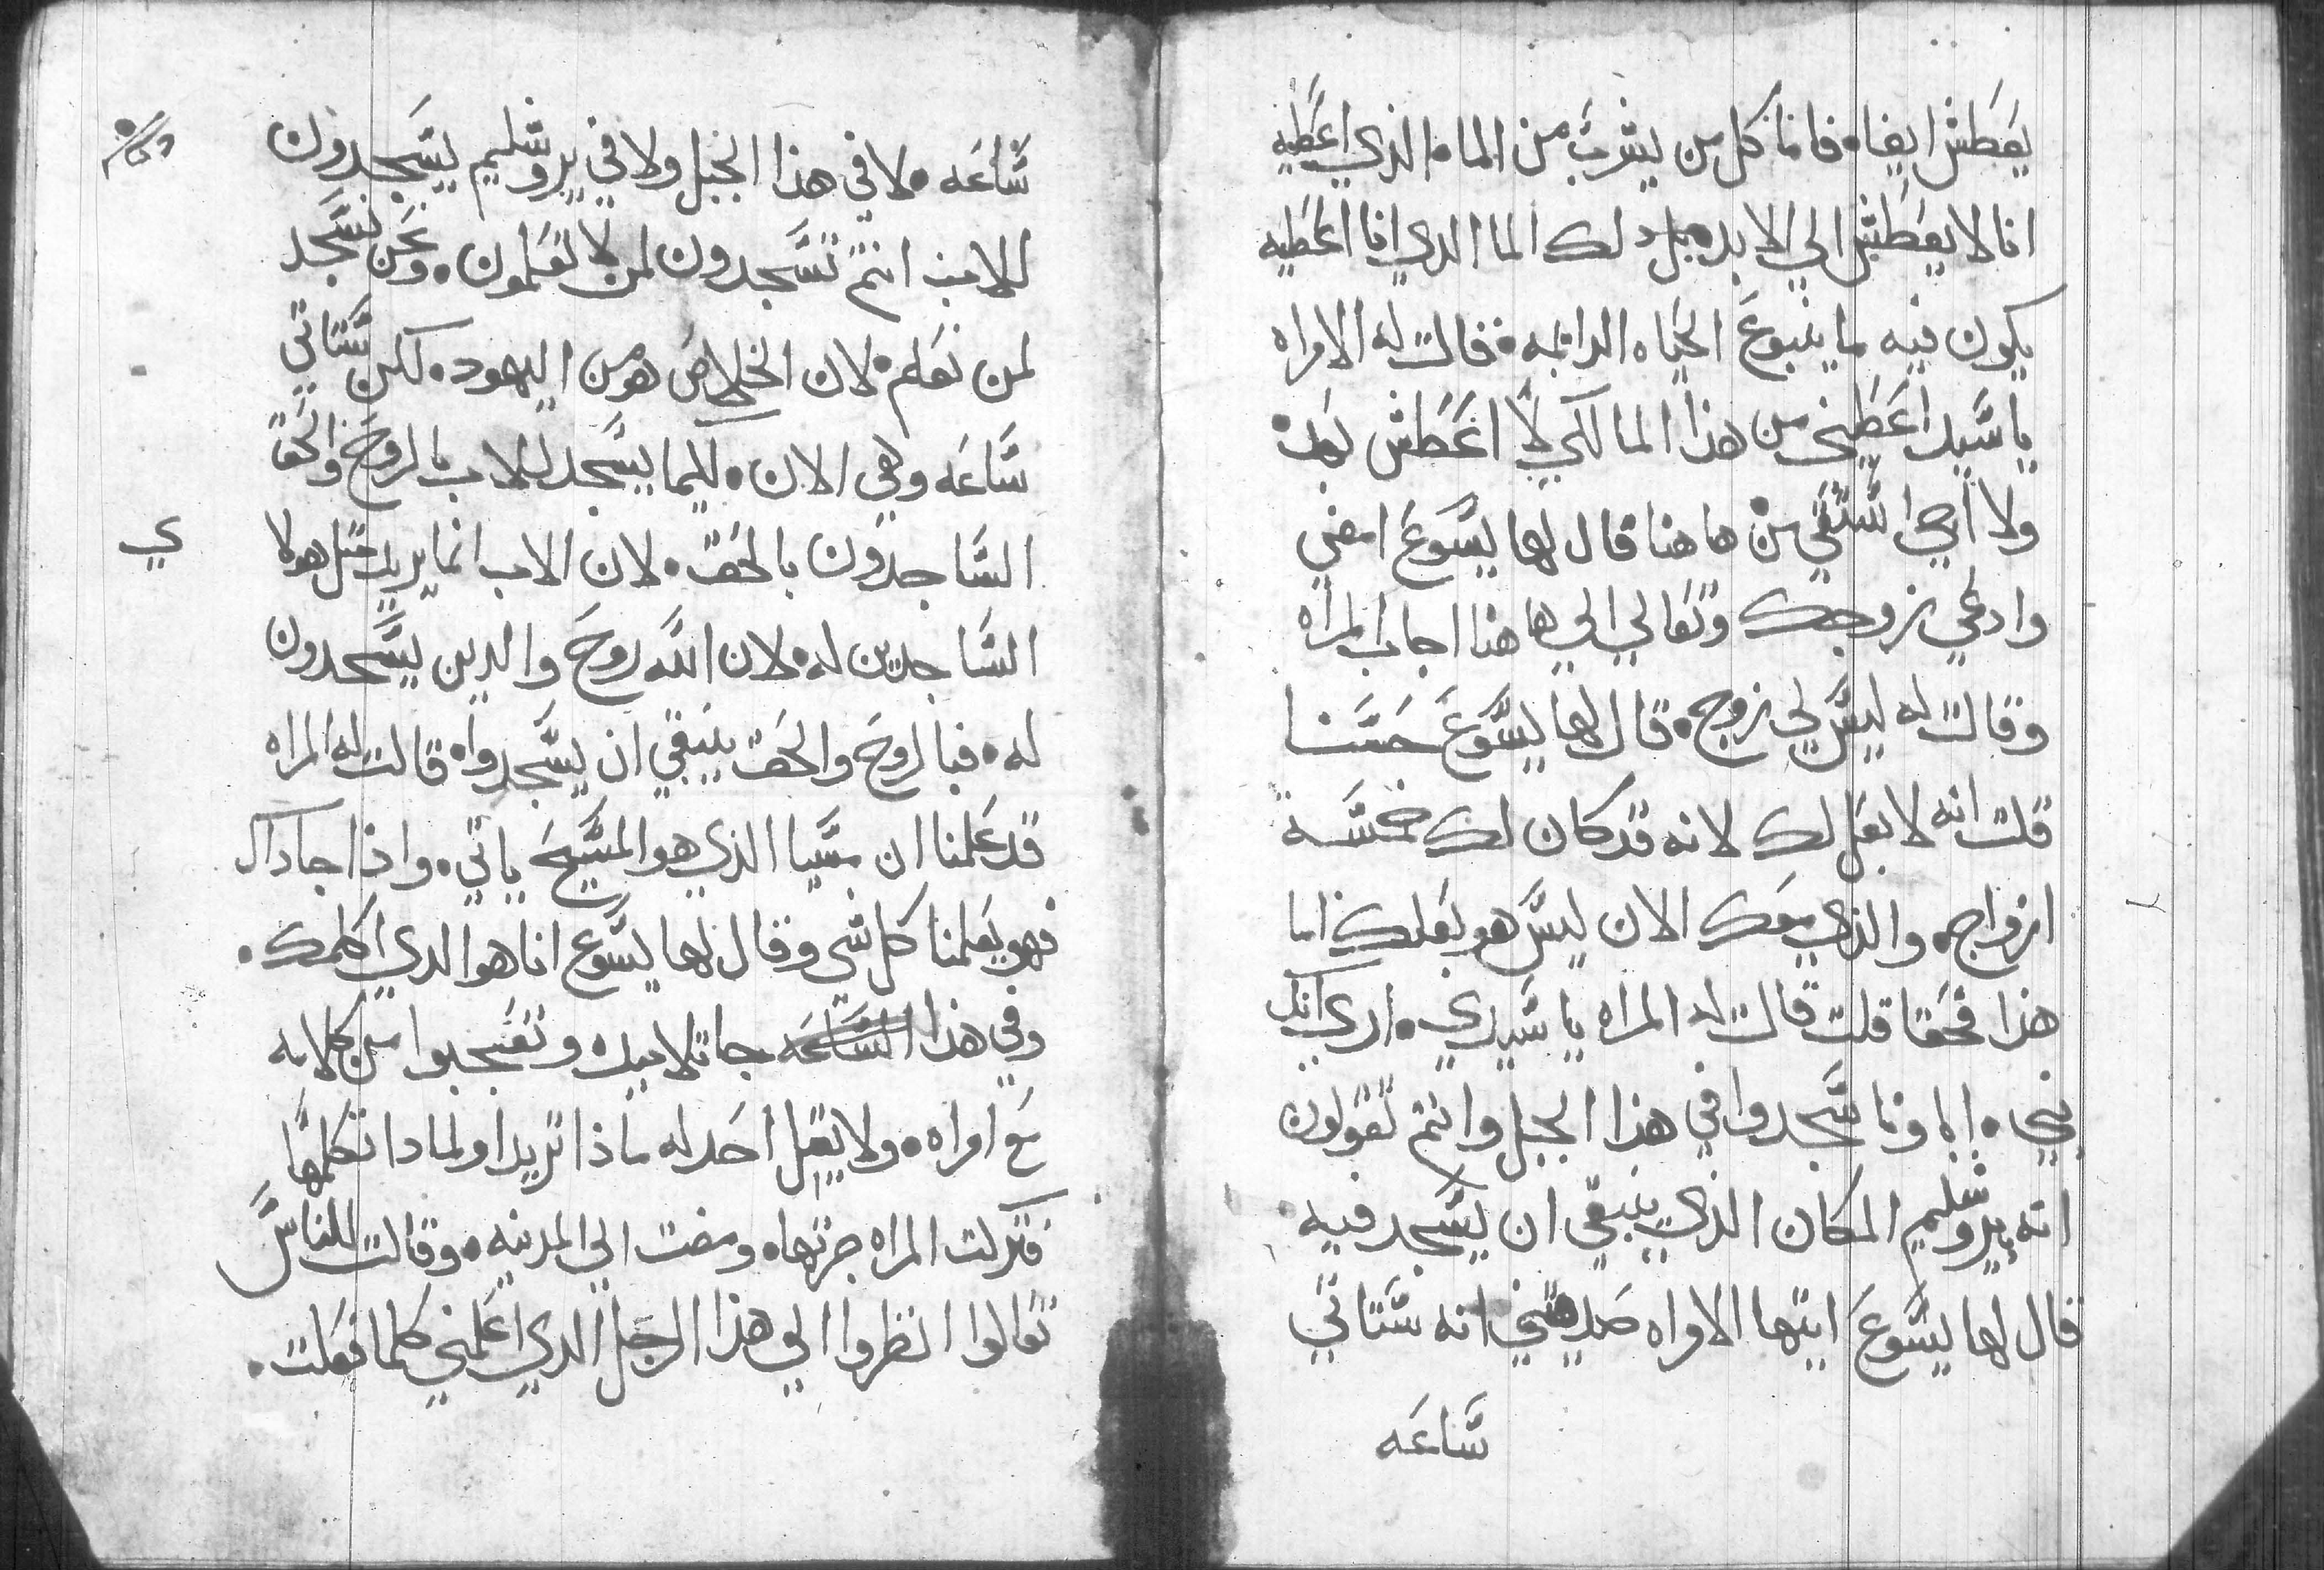 يعطش ايضا فاما كل من يشرب من الماء الذي اعطيه
انا لا يعطش الي الابد بل دلك الما الدي انا اعطيه
يكون فيه ما ينبوع الحياه الدايمه فقالت له الامراه
يا سيد اعطيني من هذا الما لكي لا اعطش بعد
ولا اجي استقي من هاهنا قال لها يسوع امضي
وادعي زوجك وتعالي الي هاهنا اجاب المراه
وقالت له ليس لي زوج قال لها يسوع حسنا
قلت انه لا بعل لك لانه قد كان لك خمسة
ازواج والذي معك الان ليس هو بعلك اما
هذا فحقا قلت قالت له المراه يا سيدي اري انك
نبي اباونا سجدوا في هذا الجبل وانتم تقولون
انه يروشليم المكان الذي ينبغي ان يسجد فيه
قال لها يسوع ايتها الامراه صدقيني انه ستاتي
ساعه
ساعه لا في هذا الجبل ولا في يروشليم يسجدون
للاب انتم تسجدون لمن لا تعلمون ونحن نسجد
لمن نعلم لان الخلاص هو من اليهود لكن ستاتي
ساعه وهي الان ليما يسجد للاب بالروح والحق
الساجدون بالحق لان الاب انما يريد مثل هولا
ي
الساجدين له لان الله روح والدين يسجدون
له فبالروح والحق ينبغي ان يسجدوا قالت له المراه
قد علمنا ان مسيا الذي هو المسيح ياتي واذا جا داك
فهو يعلمنا كل شي وقال لها يسوع انا هو الدي اكلمك
وفي هذا الساعه جا تلاميده وتعجبوا من كلامه
مع امراه ولا يقل احد له ماذا تريد او لمادا تكلمها
فتركت المراه جرتها ومضت الي المدينه وقالت للناس
تعالوا انظروا الي هذا الرجل الدي اعلمني كلما فعلت